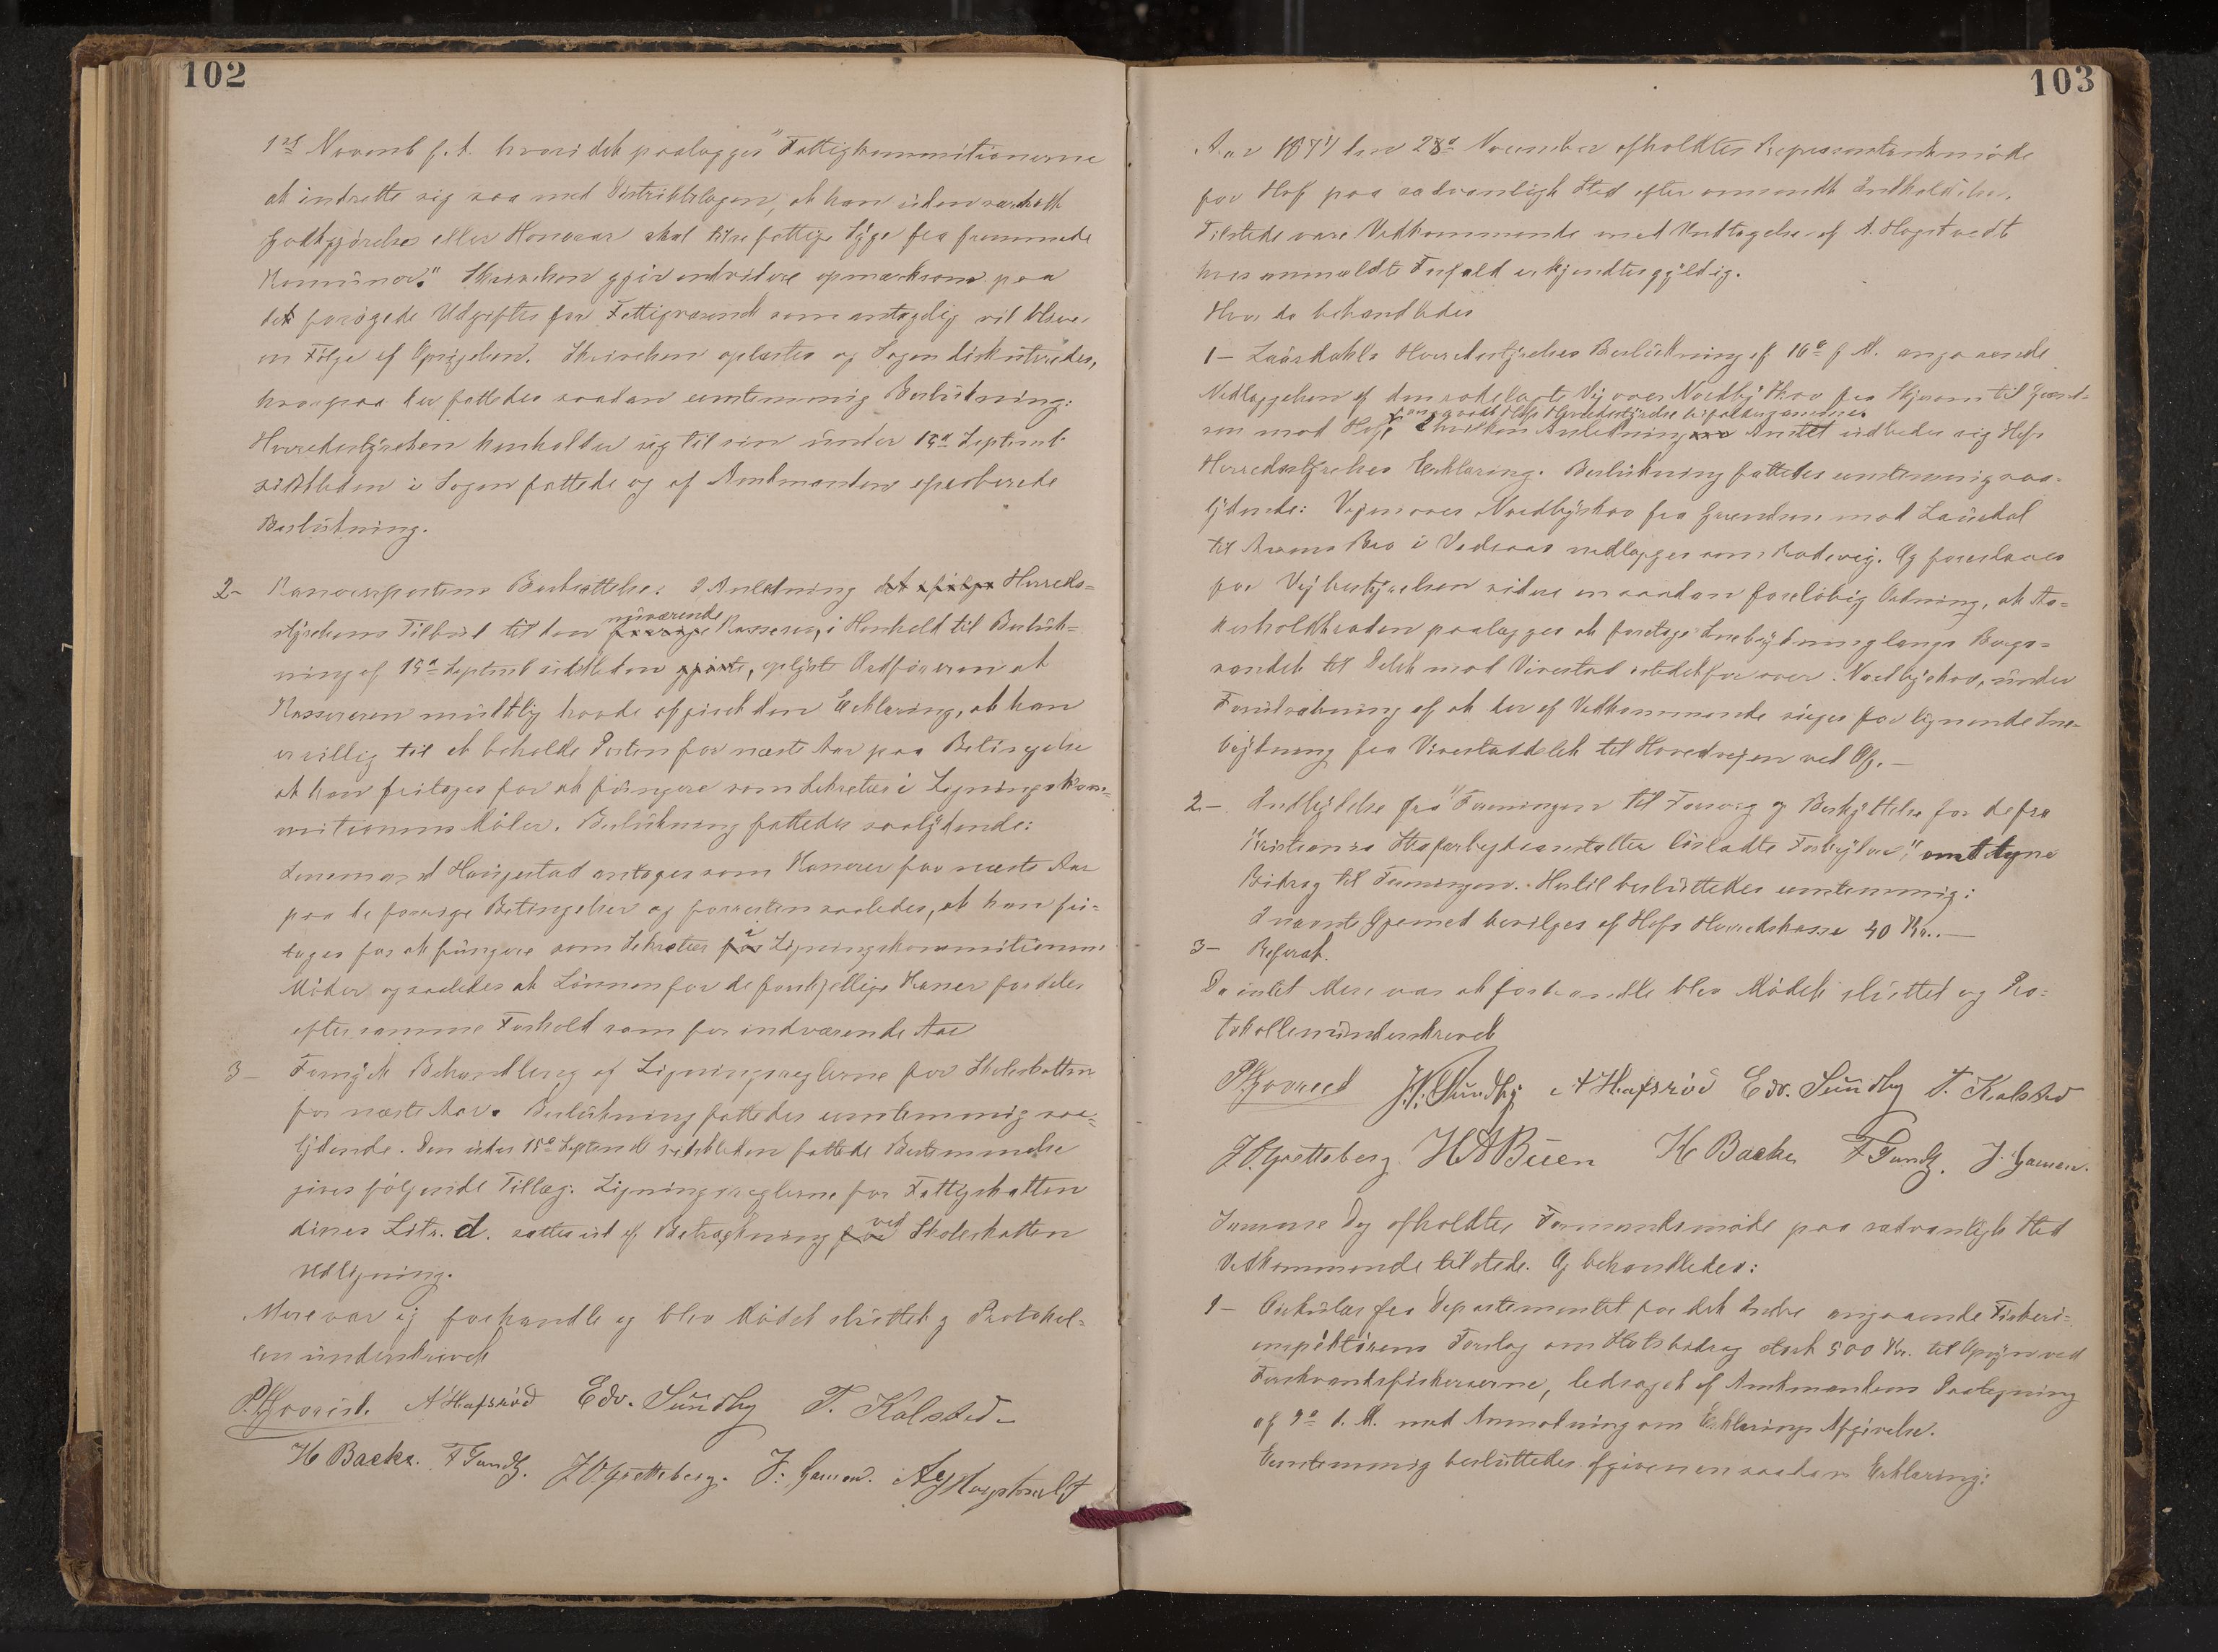 102
1ste Novemb f. A. hvori det paalægges "Fattigkommitionerne
at indrette sig saa med Distriktslægen, at han uden særskilt
Godtgjørelse eller Honorar skal tilse fattige Syge fra fremmede
Komuner." Skrivelsen gjør endvidere opmærksom paa
de forøgede Udgifter for Fattigvæsenet som antagelig vil blive
en Følge af Opsigelsen. Skrivelsen oplæstes og Sagen diskuteredes,
hvorpaa der fattedes saadan eenstemmig Beslutning:
Herredsstyrelsen henholder sig til sin under 15de Septemb
sidstleden i Sagen fattede og af Amtmanden approberede
Beslutning.
2- Kasserpostens Besættelse. I Anledning det ifølge Herreds=
styrelsens Tilbud til den forrige nuværende Kasserer, i Henhold til Beslut=
ning af 15de Septemb sidstleden gjorte, oplyste Ordføreren at
Kassereren mundtlig havde afgivet den Erklæring, at han
er villig til at beholde Posten for næste Aar paa Betingelse
at han fritages for at fungere som Sekretær i Ligningskom=
mitionens Møder. Beslutning fattedes saalydende:
Lensmand Haugestad antages som Kasserer for næste Aar
paa de forrige Betingelser og forresten saaledes, at han fri=
tages for at fungere som Sekretær for i Ligningskommitionens
Møder og saaledes at Lønnen for de forskjellige Kasser fordeles
efter samme Forhold som for indværende Aar
3- Fornyet Behandling af Ligningsreglerne for Skoleskatten
for næste Aar. Beslutning fattedes eenstemmig saa=
lydende. Den under 15de Septemb sidstleden fattede Bestemmelse
gives følgende Tillæg: Ligningsreglerne for Fattigskatten
dines Litr. d. sættes ud af Betragtning for ved Skoleskatten
Udligning.
Mere var ej forhandle og blev Mødet sluttet g Protokol=
len underskrevet
A Hafsrød Edv. Sundby T. Kalsted
H Backe. F Tandb. J O Gretteberg. J. Hansen. A Hagstvedt
103
Aar 1877 den 28de November afholdtes Representantmøde
for Hof paa sædvanligt Sted efter omsendt Indkaldelse.
Tilstede vare Vedkommende med Undtagelse af A. Hagstvedt
hvis anmældte Forfald erkjendtes gyldig.
Hvor da behandledes
1- Laurdahls Herredsstyrelses Beslutning af 16de f M. angaaende
Nedlæggelsen af den rodelagte Vej over Nordby Skov fra Skjerom til Grænd=
sen mod Hof, i hvilken Anledning Amtet udbeder sig Hofs
Herredsstyrelses Erklæring. Beslutning fattedes eenstemmig saa=
lydende: Vejen over Nordbyskov fra Grændsen mod Laurdal
til Bro i Vedsaas nedlægges som Rodevej. Og foreslaaes
for Vejbestyrelsen videre en saadan foreløbig Ordning, at
paalægges at foretage Snebrydning langs
vandet til Delet mod Virestad istedetfor over Nordbyskov, under
Forudsætning af at der af Vedkommende sørges for lignende Sne=
brydning fra Virestaddelet til Hovedvejen ved Of.—
2- Indbydelse fra "Foreningen til Forsorg og Beskyttelse for de fra
Kristiania Strafarbeidsanstalter løsladte Forbrydere", om at tegne
Bidrag til Foreningen. Hertil besluttedes eenstemmig:
I nævnte Øjemed bevilges af Hofs Herredskasse 40 Kr..—
3- Referat.
Da intet Mere var at forhandle blev Mødet sluttet og Pro=
tokollen underskrevet
J. N. Sundby A Hafsrød Edv. Sundby T. Kalsted
J O Grettsberg. H A Buen H Backe F Tandb. J. Hansen.
Samme Dag afholdtes Formandsmøde paa sædvanligt Sted
Vedkommende tilstede. Og behandledes:
1- Cirkulær fra Departementet for det Indre angaaende Fiskeri=
inspektørens Forslag om Statsbidrag stort 500 Kr. til Opsyn ved
Ferskvandsfiskerierne, ledsaget af Amtmandens Paategning
af 9de d. M. med Anmodning om Erklærings Afgivelse.
Eenstemmig besluttedes afgiven en saadan Erklæring: